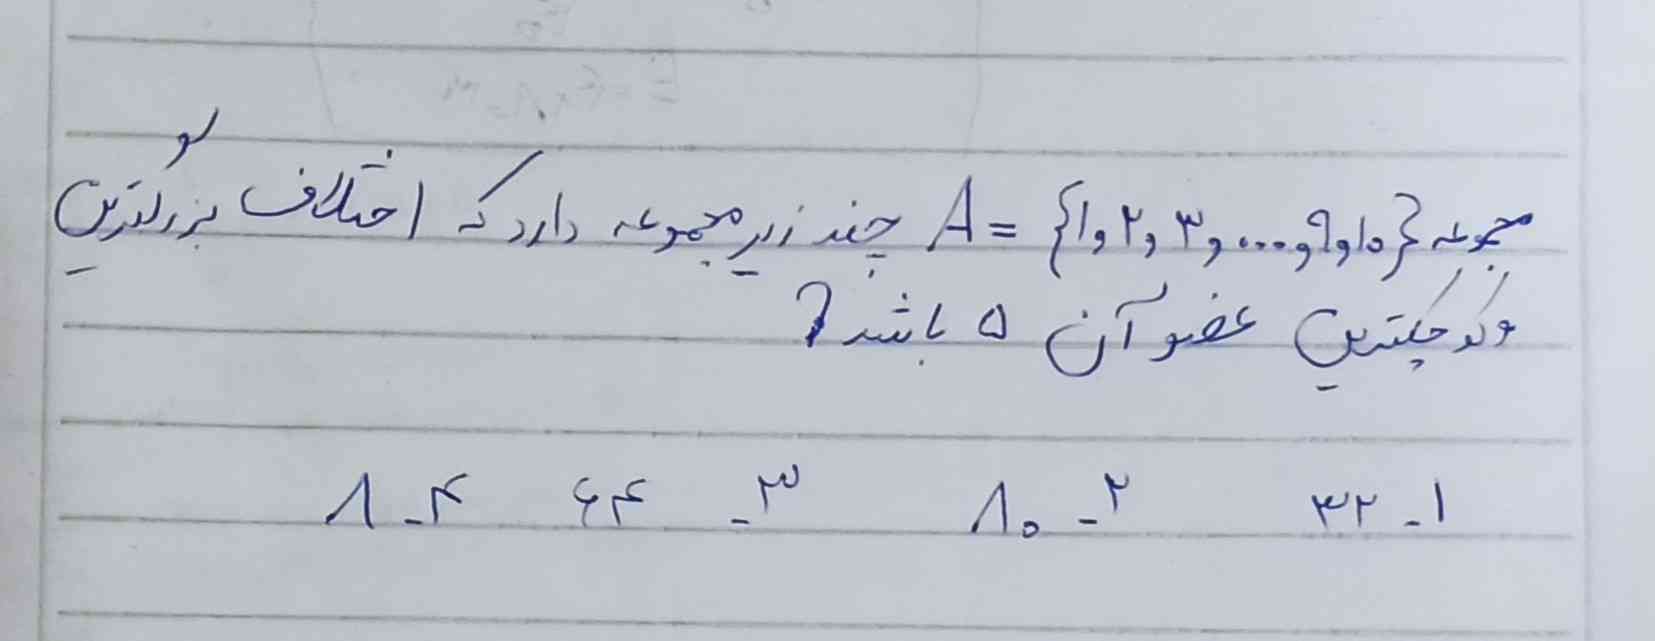 مجموعه A = {۱, ۲, ۳, ..., ۹, ۱۰} چند زیر مجموعه دارد که اختلاف بزرگترین
و کوچکترین عضو آن ۵ باشد؟
۱- ۳۲ ۲- ۸۰ ۳- ۶۴ ۴- ۸